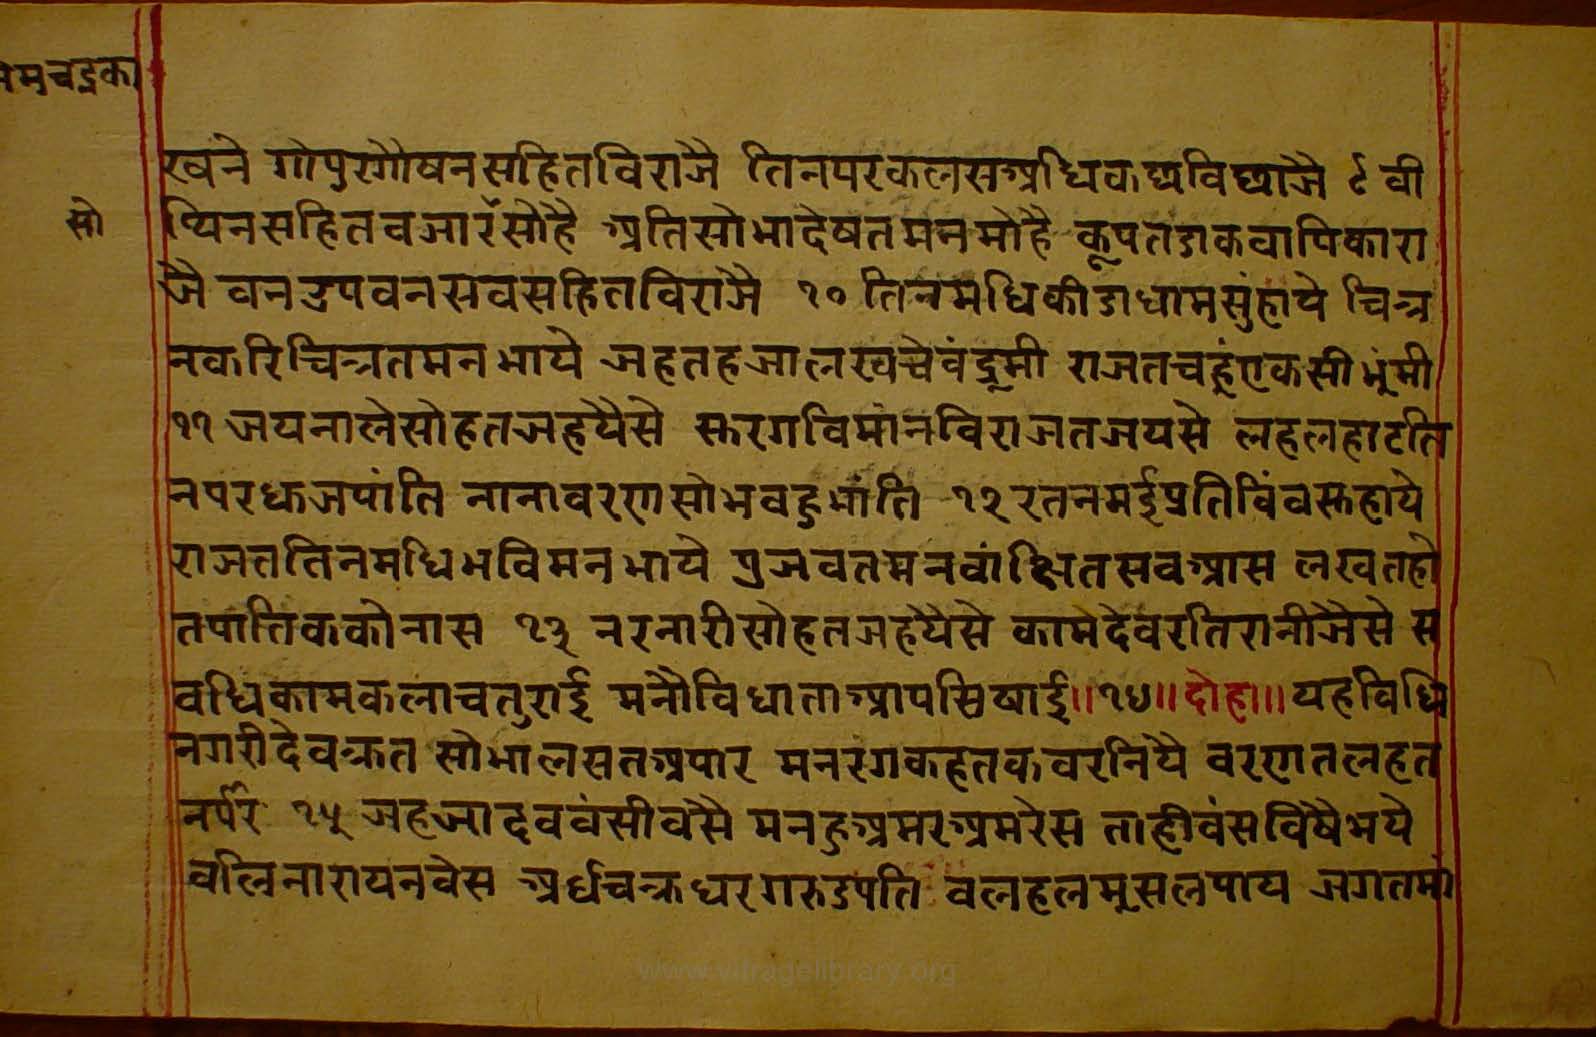 नेमचद्रका
रवने गोपुरगौषनसहितविराजै तिनपरकलसअधिकछविछाजै ९ वी
सो
थ्यिनसहितवजारसोहै अतिसोभादेषतमनमोहै कूपतडाकवापिकारा
जै वनउपवनसवसहितविराजै १० तिनमधिकीडाधामसुंहाये चित्र
नकरिचित्रतमनभाये जहतहजालरवचेवंद्रूमी राजतचहूंएकसीभूंमी
११ जयनालेसोहतजहयैसे स्वरगविमांनविराजतजयसे लहलहाटति
नपरध्वजपांति नानावरणसोभवहुभांति १२ रतनमईप्रतिविंवस्वहाये
राजततिनमधिभविमनभाये पुजवतमनवांछितसवआस लखतहो
तपातिककोनास १३ नरनारीसोहतजहयैसे कामदेवरतिरानीजैसे स
वधिकामकलाचतुराई मनौविधाताआपसिषाई॥१४॥दोहा॥यहविधि
नगरीदेवक्रत सोभालसतअपार मनरंगकहतकवरनियै वरणतलहत
नपरि १५ जहजादववंसीवसै मनहुअमरअमरेस ताहीवंसविषैभये
वलिनारायनवेस अर्धचक्रधरगरुडपति वलहलमूसलपाय जगतमां
www.vitragelibrary.org